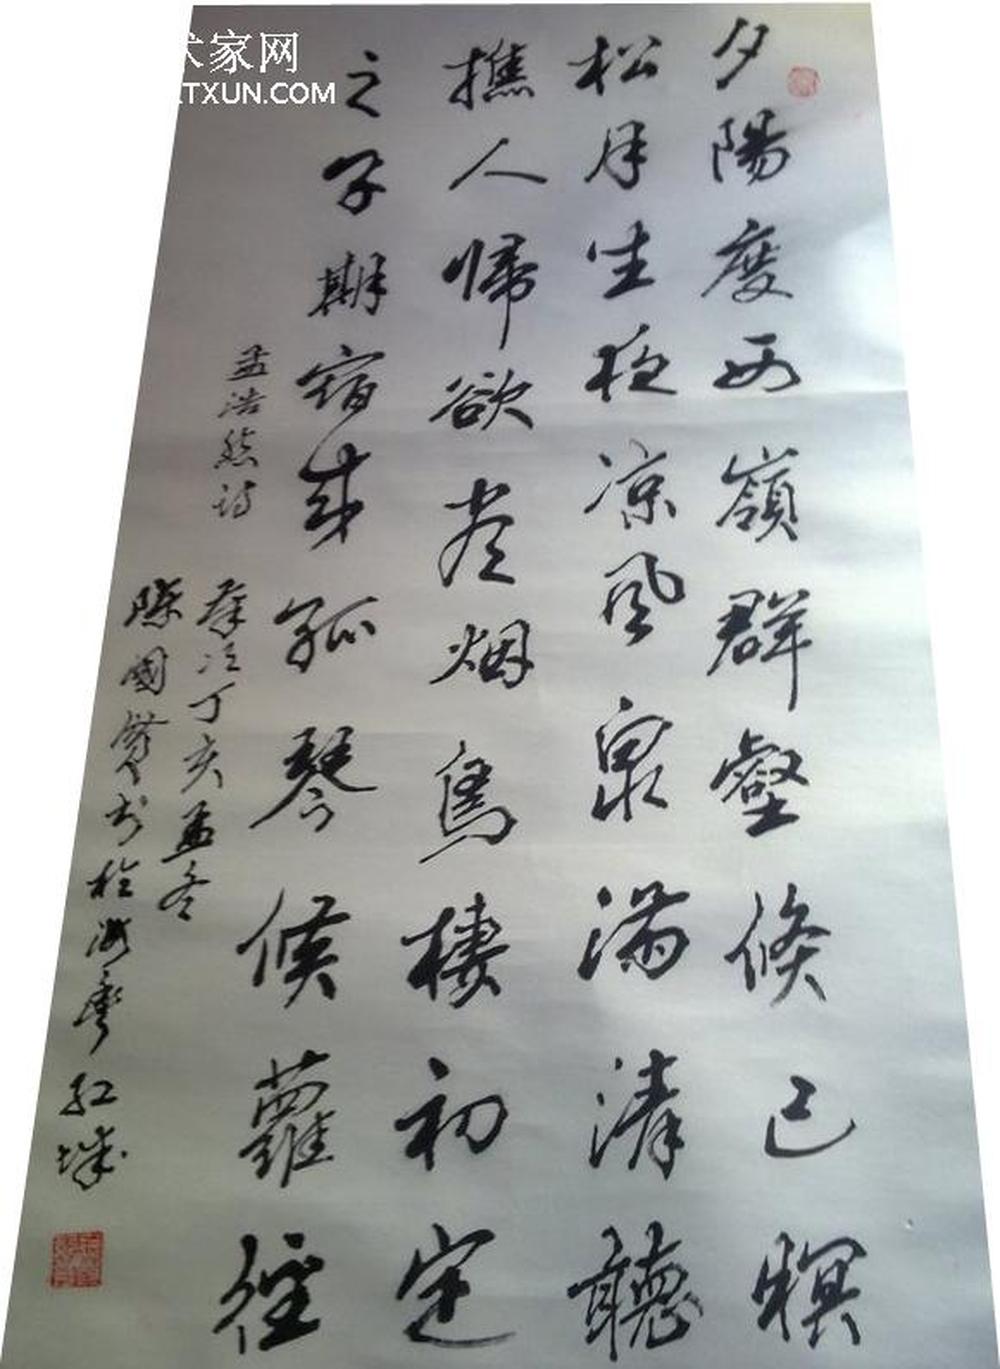 夕陽度西嶺群壑倏已暝
松月生夜凉風泉满清聽
樵人歸欲盡烟鳥棲初定
之子期宿來孤琴候蘿徑
孟浩然詩
丁亥孟冬
陳國
红城
术家网
RTXUN.COM